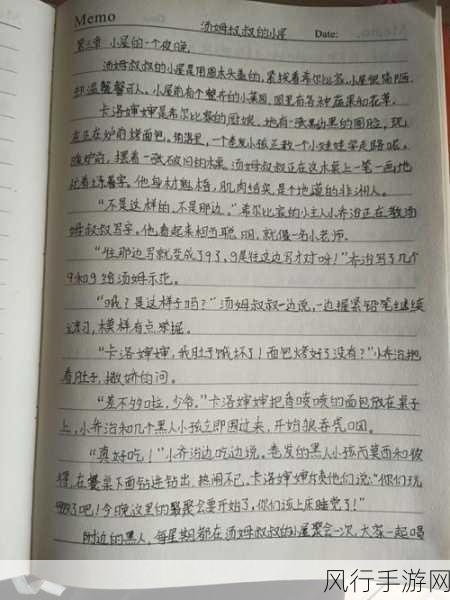 Memo 汤姆叔叔的小屋 Date:
第三章 小屋的一个夜晚
汤姆叔叔的小屋是用圆木头盖的,紧挨着希尔比家,小屋很简陋
却温馨可人。小屋前有个整齐的小菜园,园里有各种蔬果和花草。
卡洛婶婶是希尔比家的厨娘,她有一张黑黝黝的圆脸,现
在正在炉前烤面包。角落里,一个卷发小孩正教一个小娃娃学走路呢。
壁炉前,摆着一张破旧的木桌,汤姆叔叔正在这木桌上一笔一画地
练着字。他身材魁梧,肌肉结实,是个地道的非洲人。
“不是这样的,不是那边。”希尔比家的小主人小乔治正在教汤
姆叔叔写字。他看起来相当聪明,就像一名小老师。
“往那边写就变成了9了,g是往这边写才对呀!”乔治写了几个
9和g给汤姆示范。
“哦?是这样子吗?”汤姆叔叔一边说,一边握紧铅笔继续
练习,模样有点笨拙。
“卡洛婶婶,我肚子饿坏了!面包烤好了没有?”小乔治抱
着肚子,撒娇的问。
“差不多啦,少爷。”卡洛婶婶把香喷喷的面包放在桌子
上,小乔治和几个黑人小孩立即围过来,开始狼吞虎咽。
“真好吃!”小乔治边吃边说。卷发的黑人小孩莫西和彼
得,在餐桌下面钻进钻出,热闹不已。卡洛婶婶对他们说:“你们玩
够了吧!今晚这里的聚会要开始了,你们该上床睡觉了!”
附近的黑人,每星期都在汤姆叔叔的小屋聚会一次,大家一起唱
风行手游网